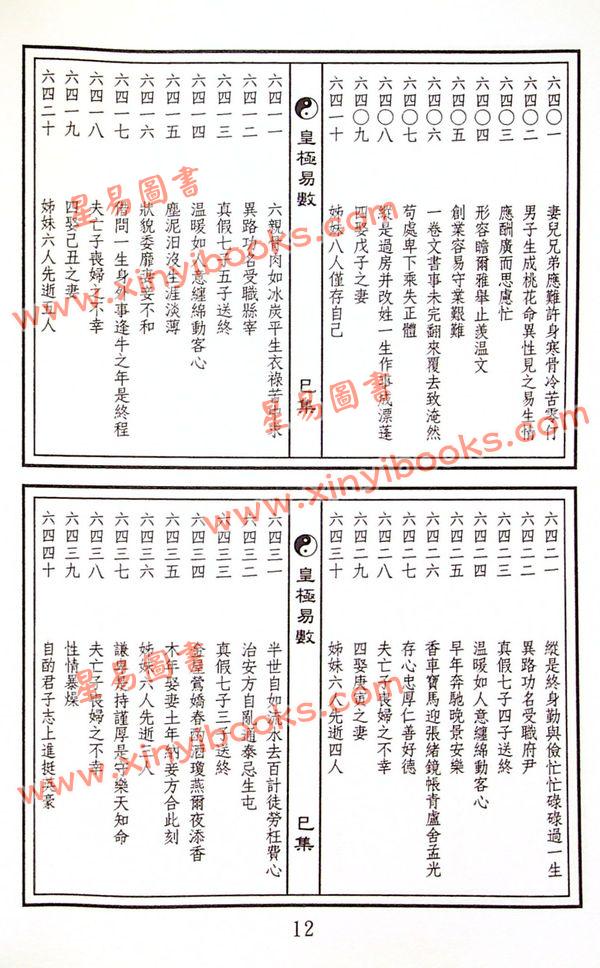 六四〇一 妻兒兄弟應難許身寒骨冷苦零仃
六四〇二 男子生成桃花命異性見之易生情
六四〇三 應酬廣而思慮忙
六四〇四 形容瞻爾雅舉止羨溫文
六四〇五 創業容易守業艱難
六四〇六 一卷文書事未完翻來覆去致淹然
六四〇七 苟處卑下乘失正體
六四〇八 縱是過房并改姓一生作事成漂蓬
六四〇九 四娶戊子之妻
六四一十 姊妹八人僅存自己
皇極易數
巳集
六四一一 六親骨肉如冰炭平生衣祿苦中求
六四一二 異路功名受職縣宰
六四一三 真假七子五子送終
六四一四 溫暖如人意纏綿動客心
六四一五 塵泥汨沒生涯淡薄
六四一六 狀貌委靡妻妾不和
六四一七 借問一生身後事逢牛之年是終程
六四一八 夫亡子喪婦之不幸
六四一九 四娶己丑之妻
六四二十 姊妹六人先逝五人
六四二一 縱是終身勤與儉忙忙碌碌過一生
六四二二 異路功名受職府尹
六四二三 真假七子四子送終
六四二四 溫暖如人意纏綿動客心
六四二五 早年奔馳晚景安樂
六四二六 香車寶馬迎張緒鏡帳青廬舍孟光
六四二七 存心忠厚仁善好德
六四二八 夫亡子喪婦之不幸
六四二九 四娶庚寅之妻
六四三十 姊妹六人先逝四人
皇極易數
巳集
六四三一 半世自如流水去百計徒勞枉費心
六四三二 治安方自亂通泰忌生屯
六四三三 真假七子三子送終
六四三四 金屋鶯嬌春酌酒瓊燕爾夜添香
六四三五 木年娶妻土年納妾方合此刻
六四三六 姊妹六人先逝三人
六四三七 謙卑是持謹厚是守樂天知命
六四三八 夫亡子喪婦之不幸
六四三九 性情暴燥
六四四十 自酌君子志上進挺英豪
12
星易圖書
www.xinyibooks.com
星易圖書
www.xinyibooks.com
www.xinyibooks.com
星易圖書
www.xinyibooks.com